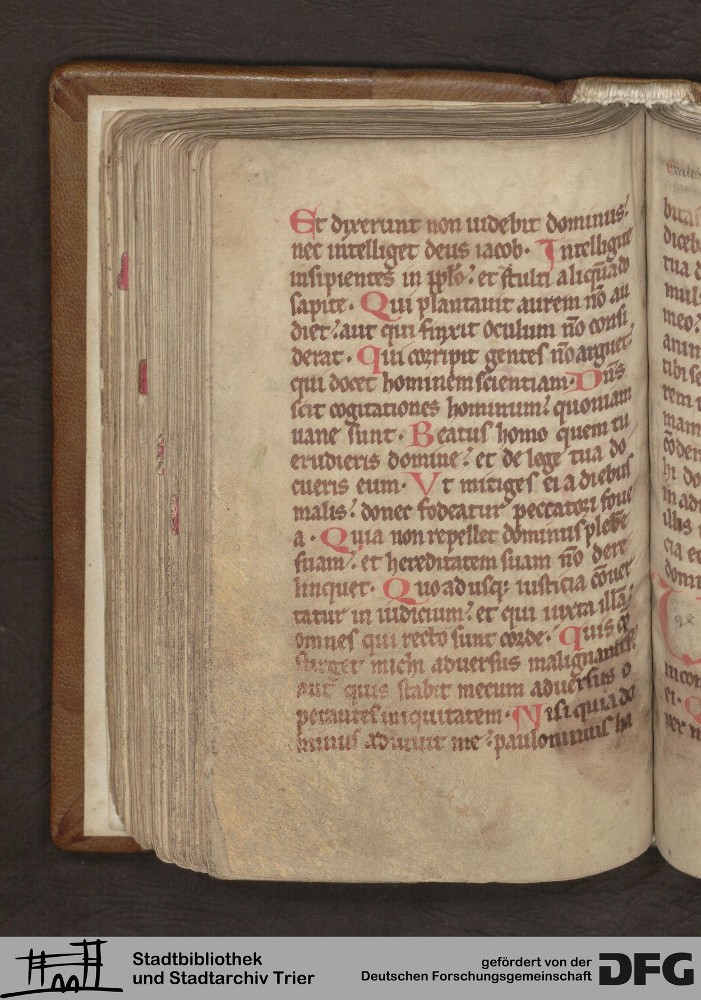 Et dixerunt non uidebit dominus:
nec intelliget deus iacob. Intelligite
insipientes in pplo: et stulti aliquãdo
sapite. Qui plantauit aurem nõ au
diet: aut qui finxit oculum nõ consi
derat. Qui corripit gentes nõ arguet:
qui docet hominem scientiam. Dñs
scit cogitationes hominum: quoniam
uane sunt. Beatus homo quem tu
erudieris domine: et de lege tua do
cueris eum. Vt mitiges ei a diebus
malis: donec fodeatur peccatori foue
a. Quia non repellet dominus plebẽ
suam: et hereditatem suam nõ dere
linquet. Quoadusq; iusticia cõuer
tatur in iudicium: et qui iuxta illã:
omnes qui recto sunt corde. Quis cõ
surget michi aduersus malignantes:
aut quis stabit mecum aduersus o
perantes iniquitatem. Nisi quia do
minus adiuuit me: paulominus ha
Stadtbibliothek
und Stadtarchiv Trier
gefördert von der
Deutschen Forschungsgemeinschaft
DFG